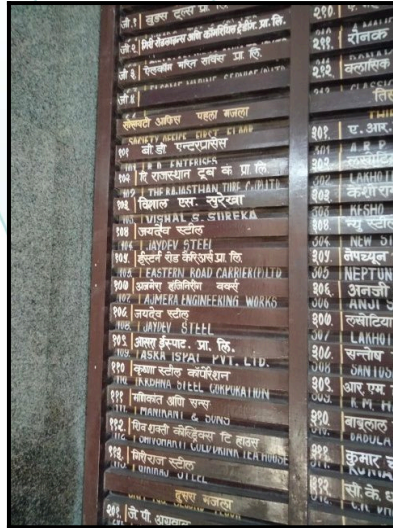 जी.१ खुन्स टूल्स प्रा. लि.
जी.२ गिरी रोडलाइन्स आणि कॉमर्शियल ट्रेडींग प्रा. लि.
जी ३ ऐलकॉम मरिन सर्विस प्रा. लि.
जी ४
सोसायटी ऑफिस पहला मजला
SOCIETY OFFICE FIRST FLOOR
१०१ बी.डी एन्टरप्रायसेस
101 B.D. ENTERISES
१०२ दि राजस्थान ट्यूब कं प्रा. लि.
102 THE RAJASTHAN TUBE C. (P) LTD
१०३ विशाल एस. सुरेखा
103 VISHAL S. SUREKA
१०४ जयदेव स्टील
104 JAYDEV STEEL
१०५ ईस्टर्न रोड कॅरिअर्स प्रा. लि.
105. EASTERN ROAD CARRIER (P) LTD
१०७ अजमेरा इंजिनिरींग वर्क्स
107 AJMERA ENGINEERING WORKS
१०८ जयदेव स्टील
108 JAYDEV STEEL
१०९ आसरा ईस्पाट. प्रा. लि.
109 ASRA ISPAT PVT. LTD.
११० कृष्णा स्टील कॉर्पोरेशन
110 KRISHNA STEEL CORPORATION
१११ मणिकांत आणि सन्स
111 MANIKANT & SONS
११२ शिव शक्ती कोल्ड्रिंक्स टि हाऊस
112 SHIVSHAKTI COLDRINK TEA HOUSE
११३ गिरीराज स्टील
113 GIRIRAJ STEEL
दुसरा मजला
SECOND FLOOR
२०१ जे. पी. अग्रवाल
२१०.
२११. रौनक
२१२. क्लासिक
212 CLASSIC
३०१ ए. आर.
301 A R P
३०२ लखोटिया
302 LAKHOTI
३०३ केशो राम
303 KESHO
३०४ न्यू स्टील
304 NEW S
३०५ नेपच्यून
305 NEPTUN
३०६ अनजी
306 ANJI S
३०७ लखोटिया
307 LAKHOTI
३०८ सन्तोष
308 SANTOS
३०९ आर. एम.
309 R.M. H
३१० बाबूलाल
310 BABULA
३११ कुमार
311 KUMAR
३१२ सी. के.